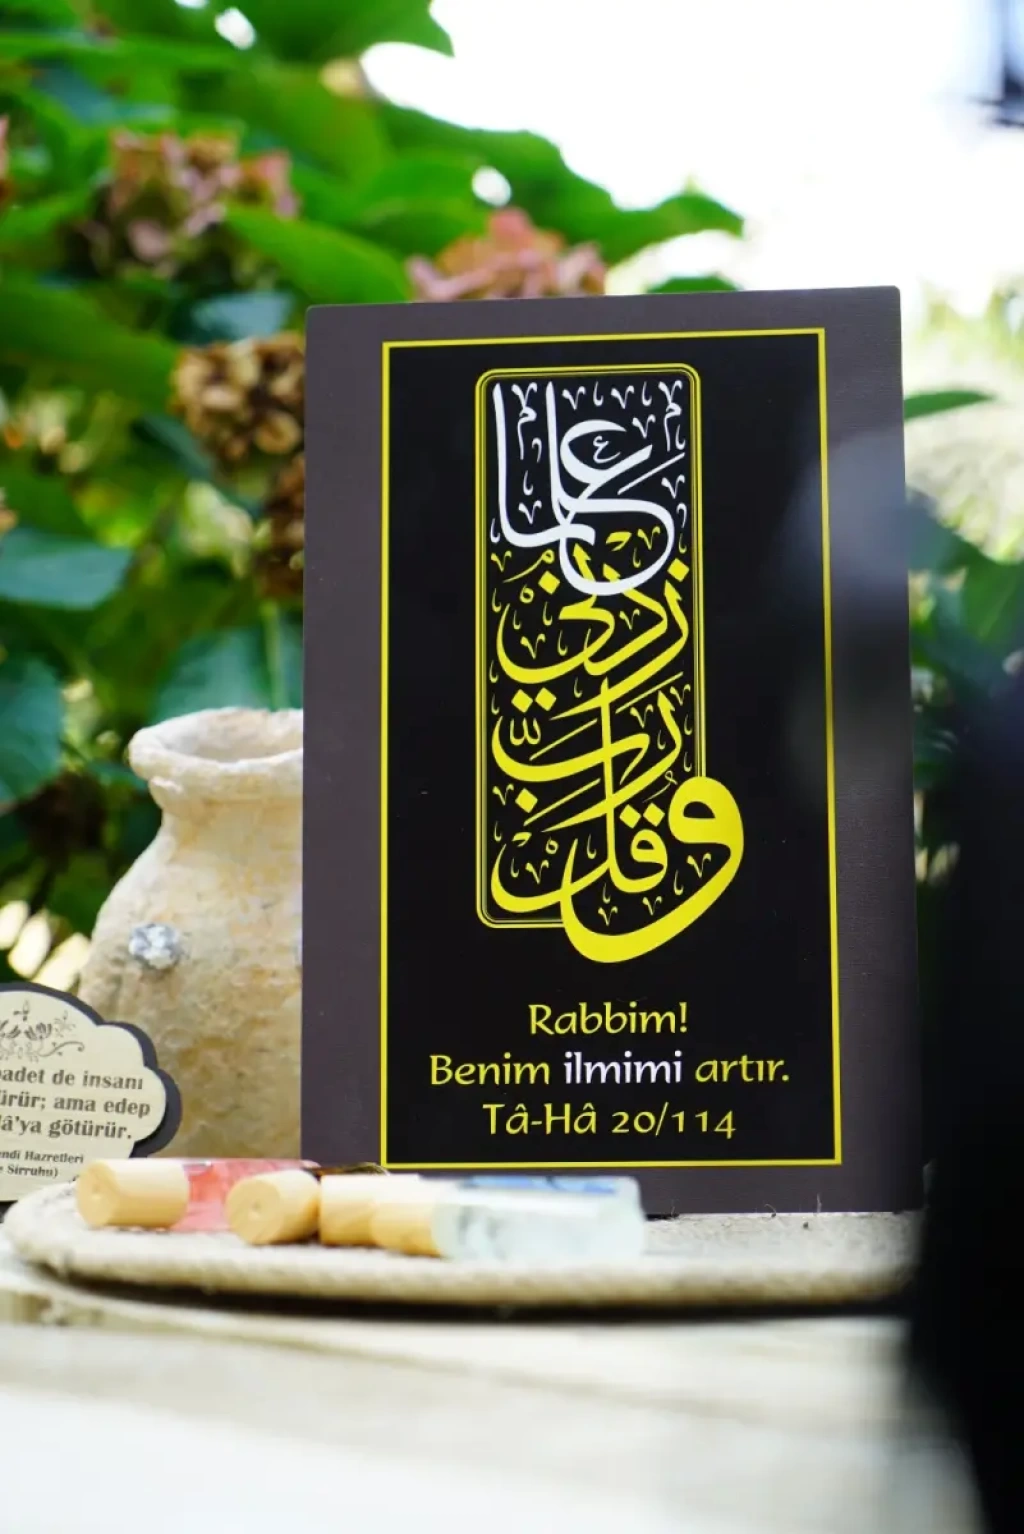 وقل
رب
زدني
علما
Rabbim!
Benim ilmimi artır.
Tâ-Hâ 20/114
de insanı
ama edep
götürür.
Hazretleri
Sirruhu)